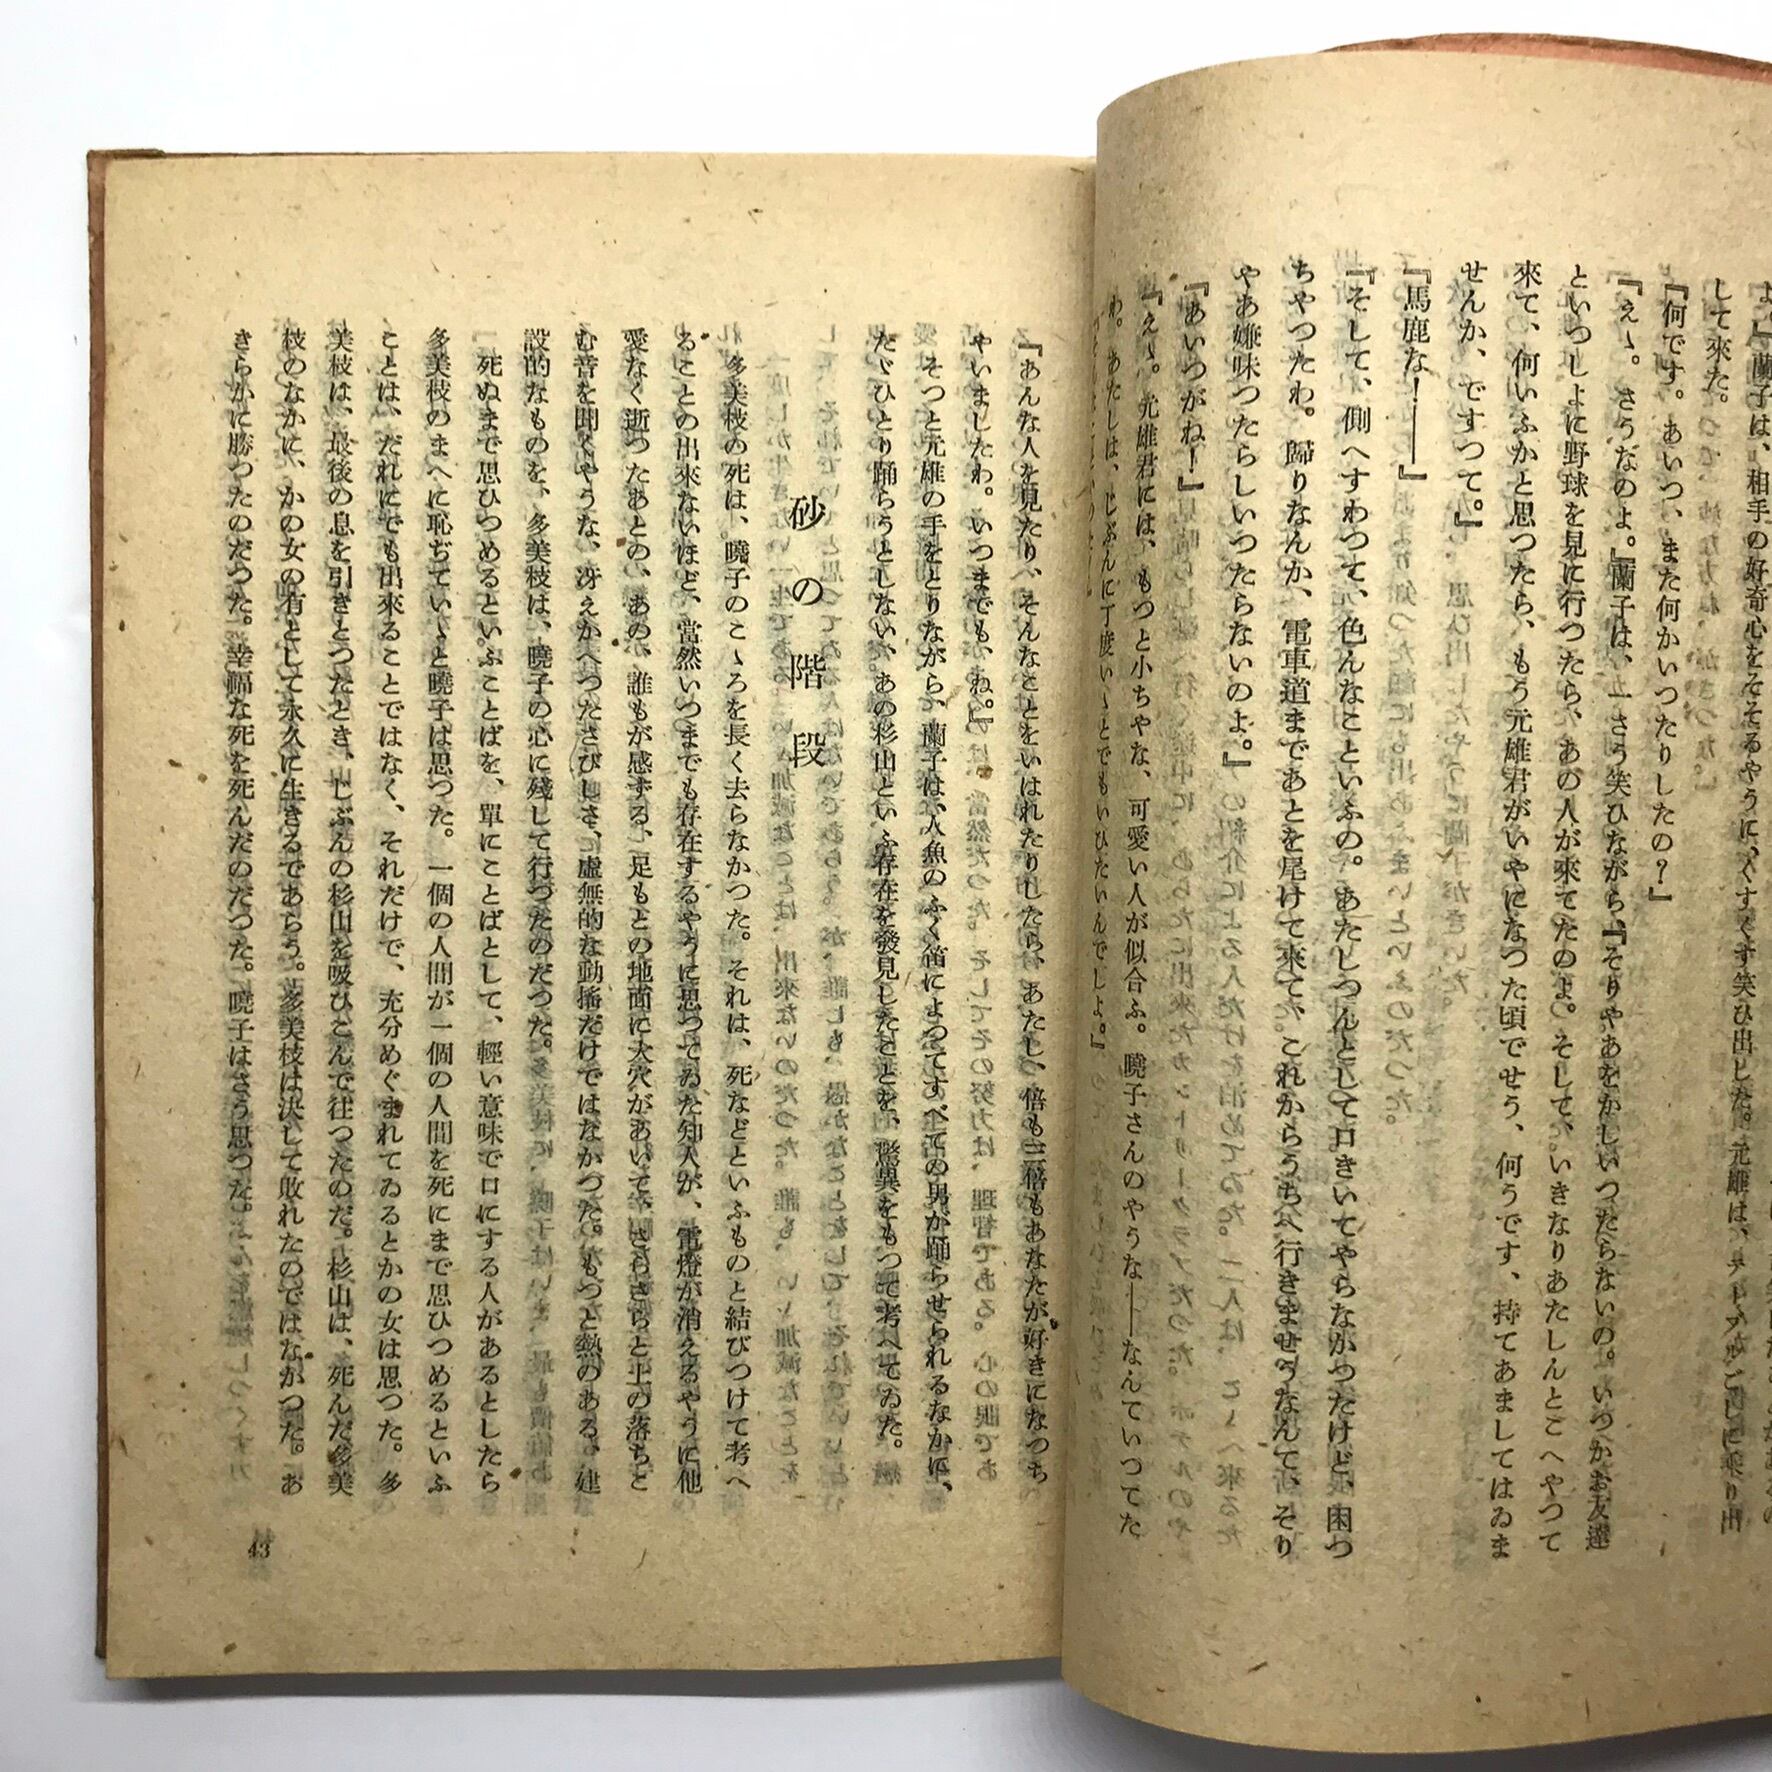 よ。』蘭子は、相手の好奇心をそそるやうに、くすくす笑ひ出した。元雄は、テーブルごしに乘り出
して來た。
『何です。あいつ、また何かいつたりしたの？』
『えゝ。さうなのよ。』蘭子は、一さう笑ひながら、『そりやあをかしいつたらないの。いつかお友達
といつしよに野球を見に行つたら、あの人が來てたのよ。そして、いきなりあたしんとこへやつて
來て、何いふかと思つたら、もう元雄君がいやになつた頃でせう、何うです、持てあましてはゐま
せんか、ですつて。』
『馬鹿な！――』
『そして、側へすわつて、色んなこといふの。あたしつんとして口きいてやらなかつたけど、困つ
ちやつたわ。歸りなんか、電車道まであとを尾けて來て、これからうちへ行きませうなんて、そり
やあ嫌味つたらしいつたらないのよ。』
『あいつがね！』
『えゝ。元雄君には、もつと小ちやな、可愛い人が似合ふ。曉子さんのやうな――なんていつてた
わ。あたしは、じぶんに丁度いゝとでもいひたいんでしよ。』
『あんな人を見たり、そんなことをいはれたりしたら、あたし、倍も二倍もあなたが好きになつち
やいましたわ。いつまでも、ね。』
そつと元雄の手をとりながら、蘭子は、人魚のふく笛によつてすべての男が踊らせられるなかに、
たゞひとり踊らうとしない、あの杉山といふ存在を發見したことを、驚異をもつて考へてゐた。
砂の階段
多美枝の死は、曉子のこゝろを長く去らなかつた。それは、死などといふものと結びつけて考へ
ることの出來ないほど、當然いつまでも存在するやうに思つてゐた知人が、電燈が消えるやうに他
愛なく逝つたあとの、あの、誰もが感ずる、足もとの地面に大穴があいて、さらさらと土の落ちこ
む音を聞くやうな、冴えかへつたさびしさ、虛無的な動搖だけではなかつた。もつと熱のある、建
設的なものを、多美枝は、曉子の心に殘して行つたのだつた。
死ぬまで思ひつめるといふことばを、單にことばとして、輕い意味で口にする人があるとしたら
多美枝のまへに恥ぢていゝと曉子は思つた。一個の人間が一個の人間を死にまで思ひつめるといふ
ことは、だれにでも出來ることではなく、それだけで、充分めぐまれてゐるとかの女は思つた。多
美枝は、最後の息を引きとつたとき、じぶんの杉山を吸ひこんで往つたのだ。杉山は、死んだ多美
枝のなかに、かの女の有として永久に生きるであらう。多美枝は決して敗れたのではなかつた。あ
きらかに勝つたのだつた。幸福な死を死んだのだつた。曉子はさう思つた。
43